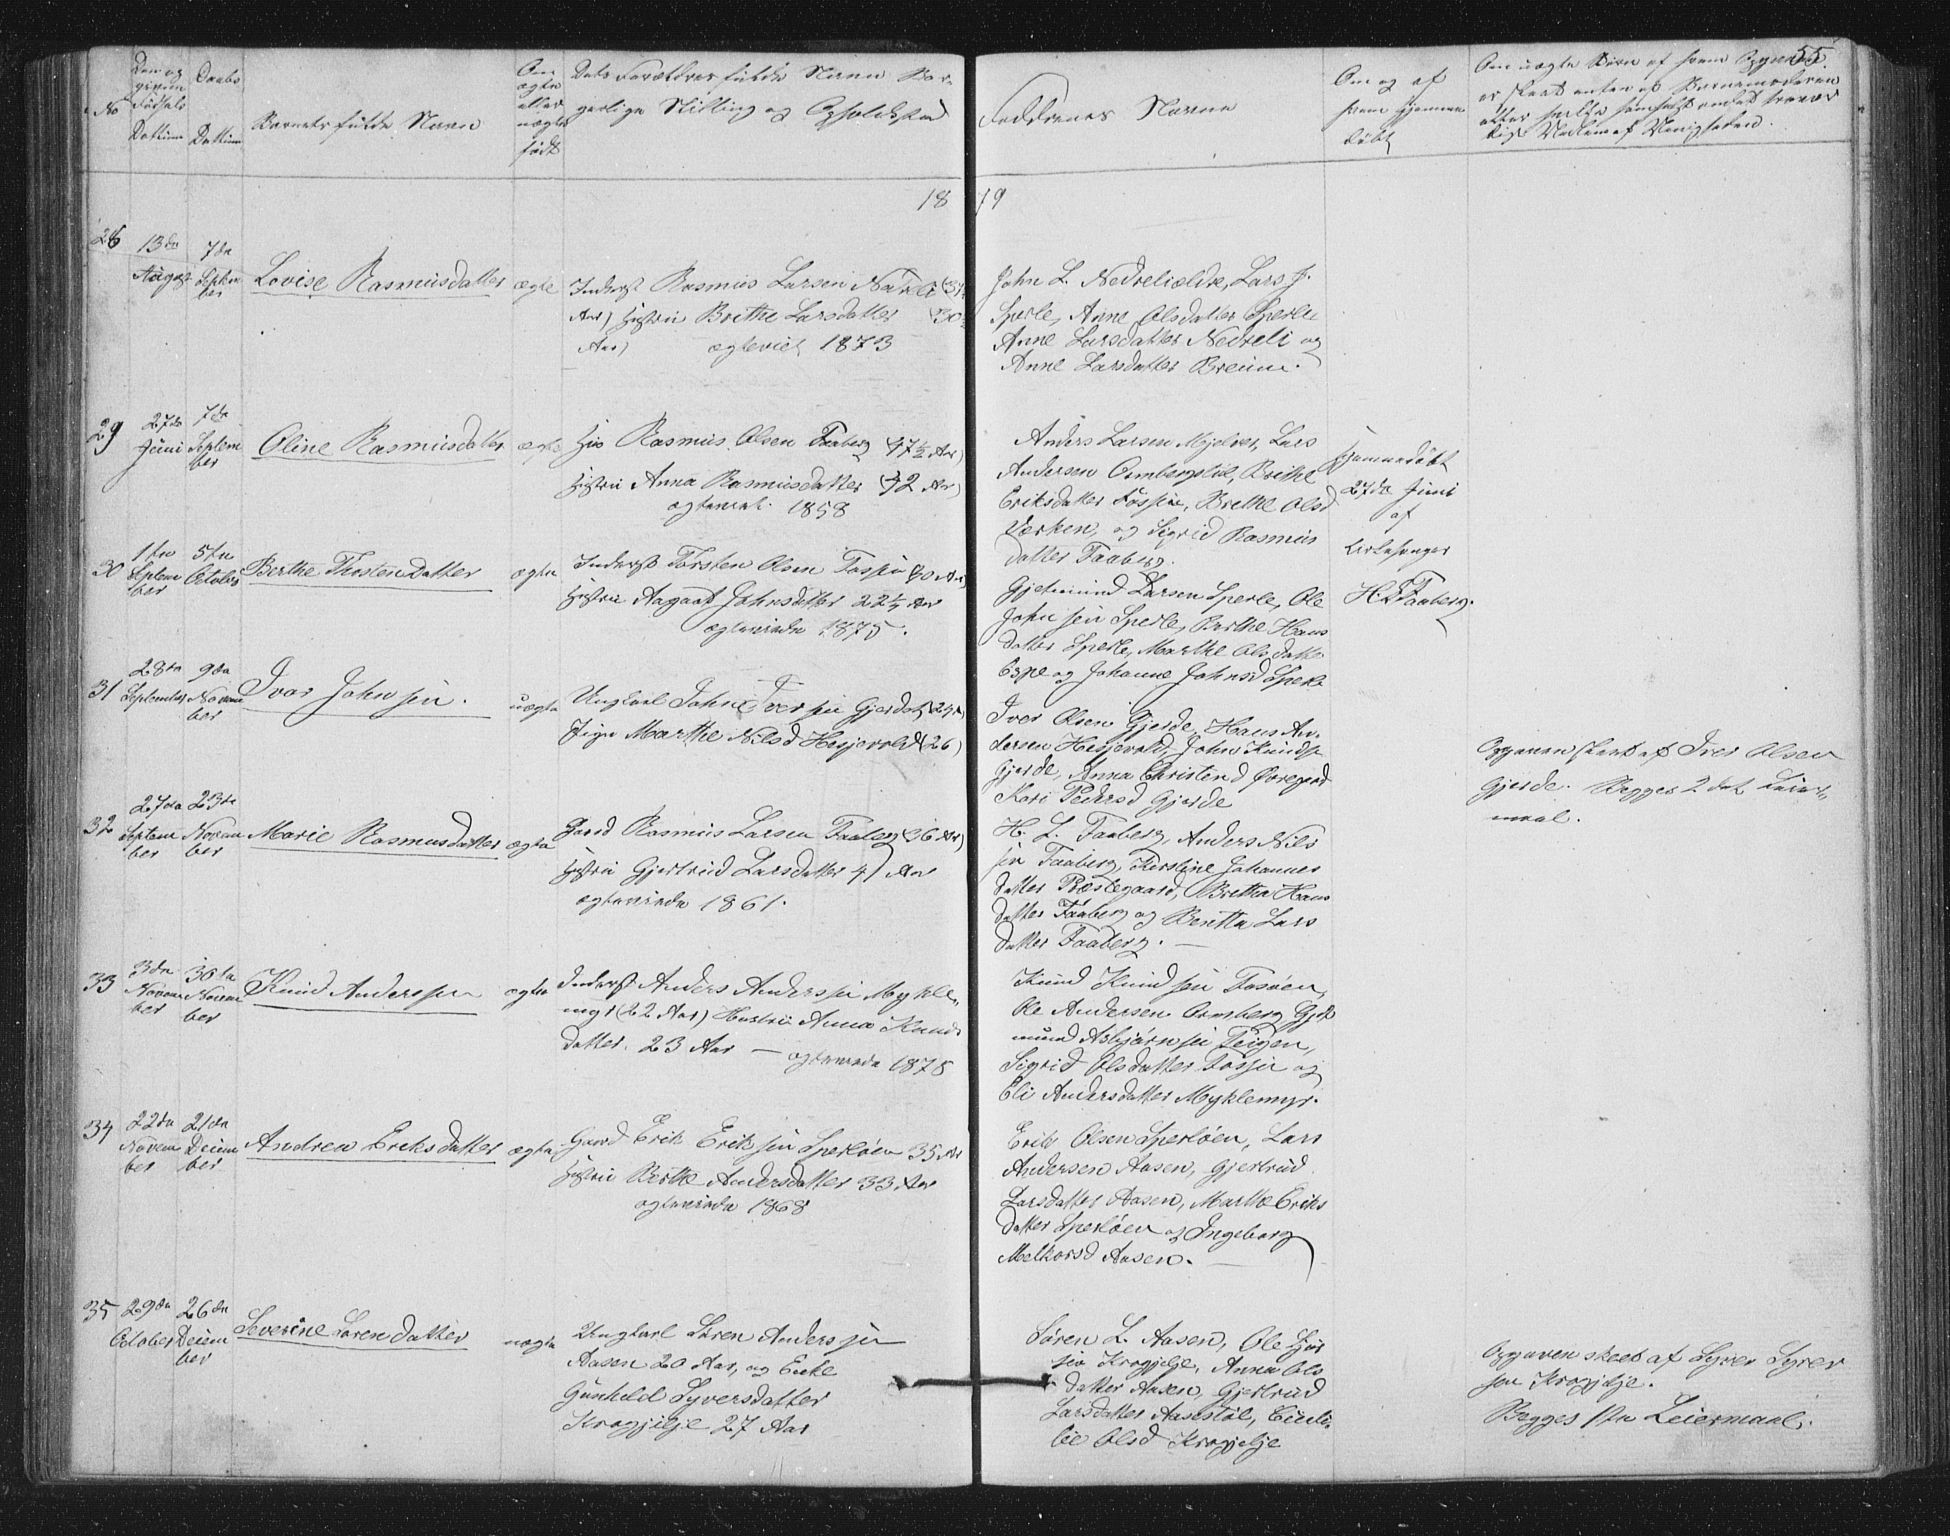 55.
No
Datum
Daabs
Datum
Barnets fulde Navn
Om
ægte
eller
uægte
født
Dets Forældres fulde Navn Bor-
gerlige Stilling og Opholdssted
Faddernes Navne
Om og af
hvem hjemme
døbt
18 79
28
13de
August
7de
Septem
ber
Lovise Rasmusdatter
ægte
Inderst Rasmus Larsen
Aar) Hustru Brithe Larsdatter (30
Aar) ægteviet 1873
John L. Nedrelielde, Lars J.
Sperle, Anne Olsdatter Sperle
Anne Larsdatter Nedreli og
Anne Larsdatter Breium.
29
27de
Juni
7de
Septem
ber
Oline Rasmusdatter
ægte
Rasmus Olsen Faaberg (47½ Aar)
Hustru Anna Rasmusdatter (42 Aar)
ægteviet. 1858
Anders Larsen Mjelver, Lars
Andersen Ormbergstøl, Brithe
Eriksdatter Fossøie, Brithe Olsd
og Sigrid Rasmus
datter Faaberg.
hjemmedøbt
27de Juni
af
Kirkesanger
H. L. Faaberg.
30
1ste
Septem
ber
5te
October
Berthe ThorstensDatter
ægte
Inderst Torsten Olsen
Hustru Aagaat Johnsdatter 22½ Aar
ægteviede 1875.
Gjetmund Larsen Sperle, Ole
Johnsen Sperle, Berthe Hans
datter Sperle, Marthe Olsdatter
Espe og Johanne Johnsd Sperle
31
28de
September
9de
Novem
ber
Ivar Johnsen.
uægte
Ungkarl John Iversen Gjerde
Pige Marthe Nilsd Hesjevold (26)
Iver Olsen Gjerde, Hans An-
dersen Hesjevold, John Knuds
Gjerde, Anna Christend Øvregard
Kari Pedersd Gjerde
Opgaven skeet af Iver Olsen
Gjerde. Begges 2det Leier-
maal.
32
27de
Septem
ber
23de
Novem
ber
Marie Rasmusdatter
ægte
Gaard Rasmus Larsen Faaberg (36 Aar)
Hustru Gjertrud Larsdatter 41 Aar
ægteviede 1861.
H. L. Faaberg, Anders Nils
sen Faaberg, Kirstine Johannes
datter Præstegaard, Britha Hans
datter Faaberg og Beritta Lars
datter Faaberg.
33
3de
Novem
ber
30te
Novem
ber
Knud Anderssen
ægte
Inderst Anders Anderssen Mykle-
myr (22 Aar) Hustru Anna Knuds
datter. 23 Aar — ægteviede 1878
Knud Knudsen Fosøen,
Ole Andersen Ormberg Gjet
mund Asbjørnsen Teigen,
Sigrid Olsdatter Fossøie og
Eli Andersdatter Myklemyr.
34
22de
Novem
ber
21de
Decem
ber
Andrea Eriksdatter
ægte
Gaard Erik Eriksen Sperløen 35 Aar
Hustru Berthe Andersdatter 33 Aar
ægteviede 1868
Erik Olsen Sperløen, Lars
Andersen Aasen, Gjertrud
Larsdatter Aasen, Marthe Eriks
datter Sperløen og Ingeborg
Melkorsd Aasen.
35
29de
October
26de
Decem
ber
Severine Sørensdatter
uægte
Ungkarl Søren Anderssen
Aasen 20 Aar, og Enke
Gunhild Syversdatter
Krogjelje 27 Aar
Søren L. Aasen, Ole
Krogjelje, Anna Ols
datter Aasen, Gjertrud
Larsdatter Aasestøl, Cicili-
Olsd Krogjelje
Opgaven skeet af Syver Syver
sen Krogjelje.
Begges 1ste Leiermaal.